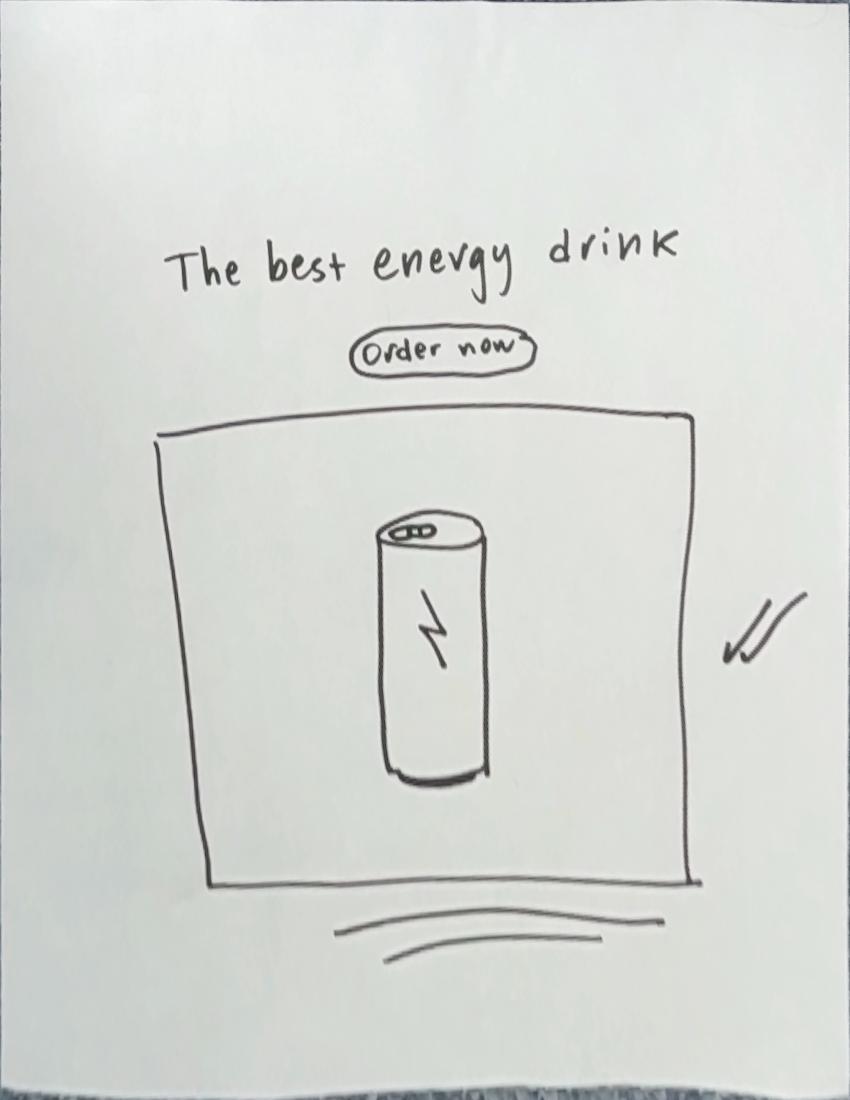 The best energy drink
Order now